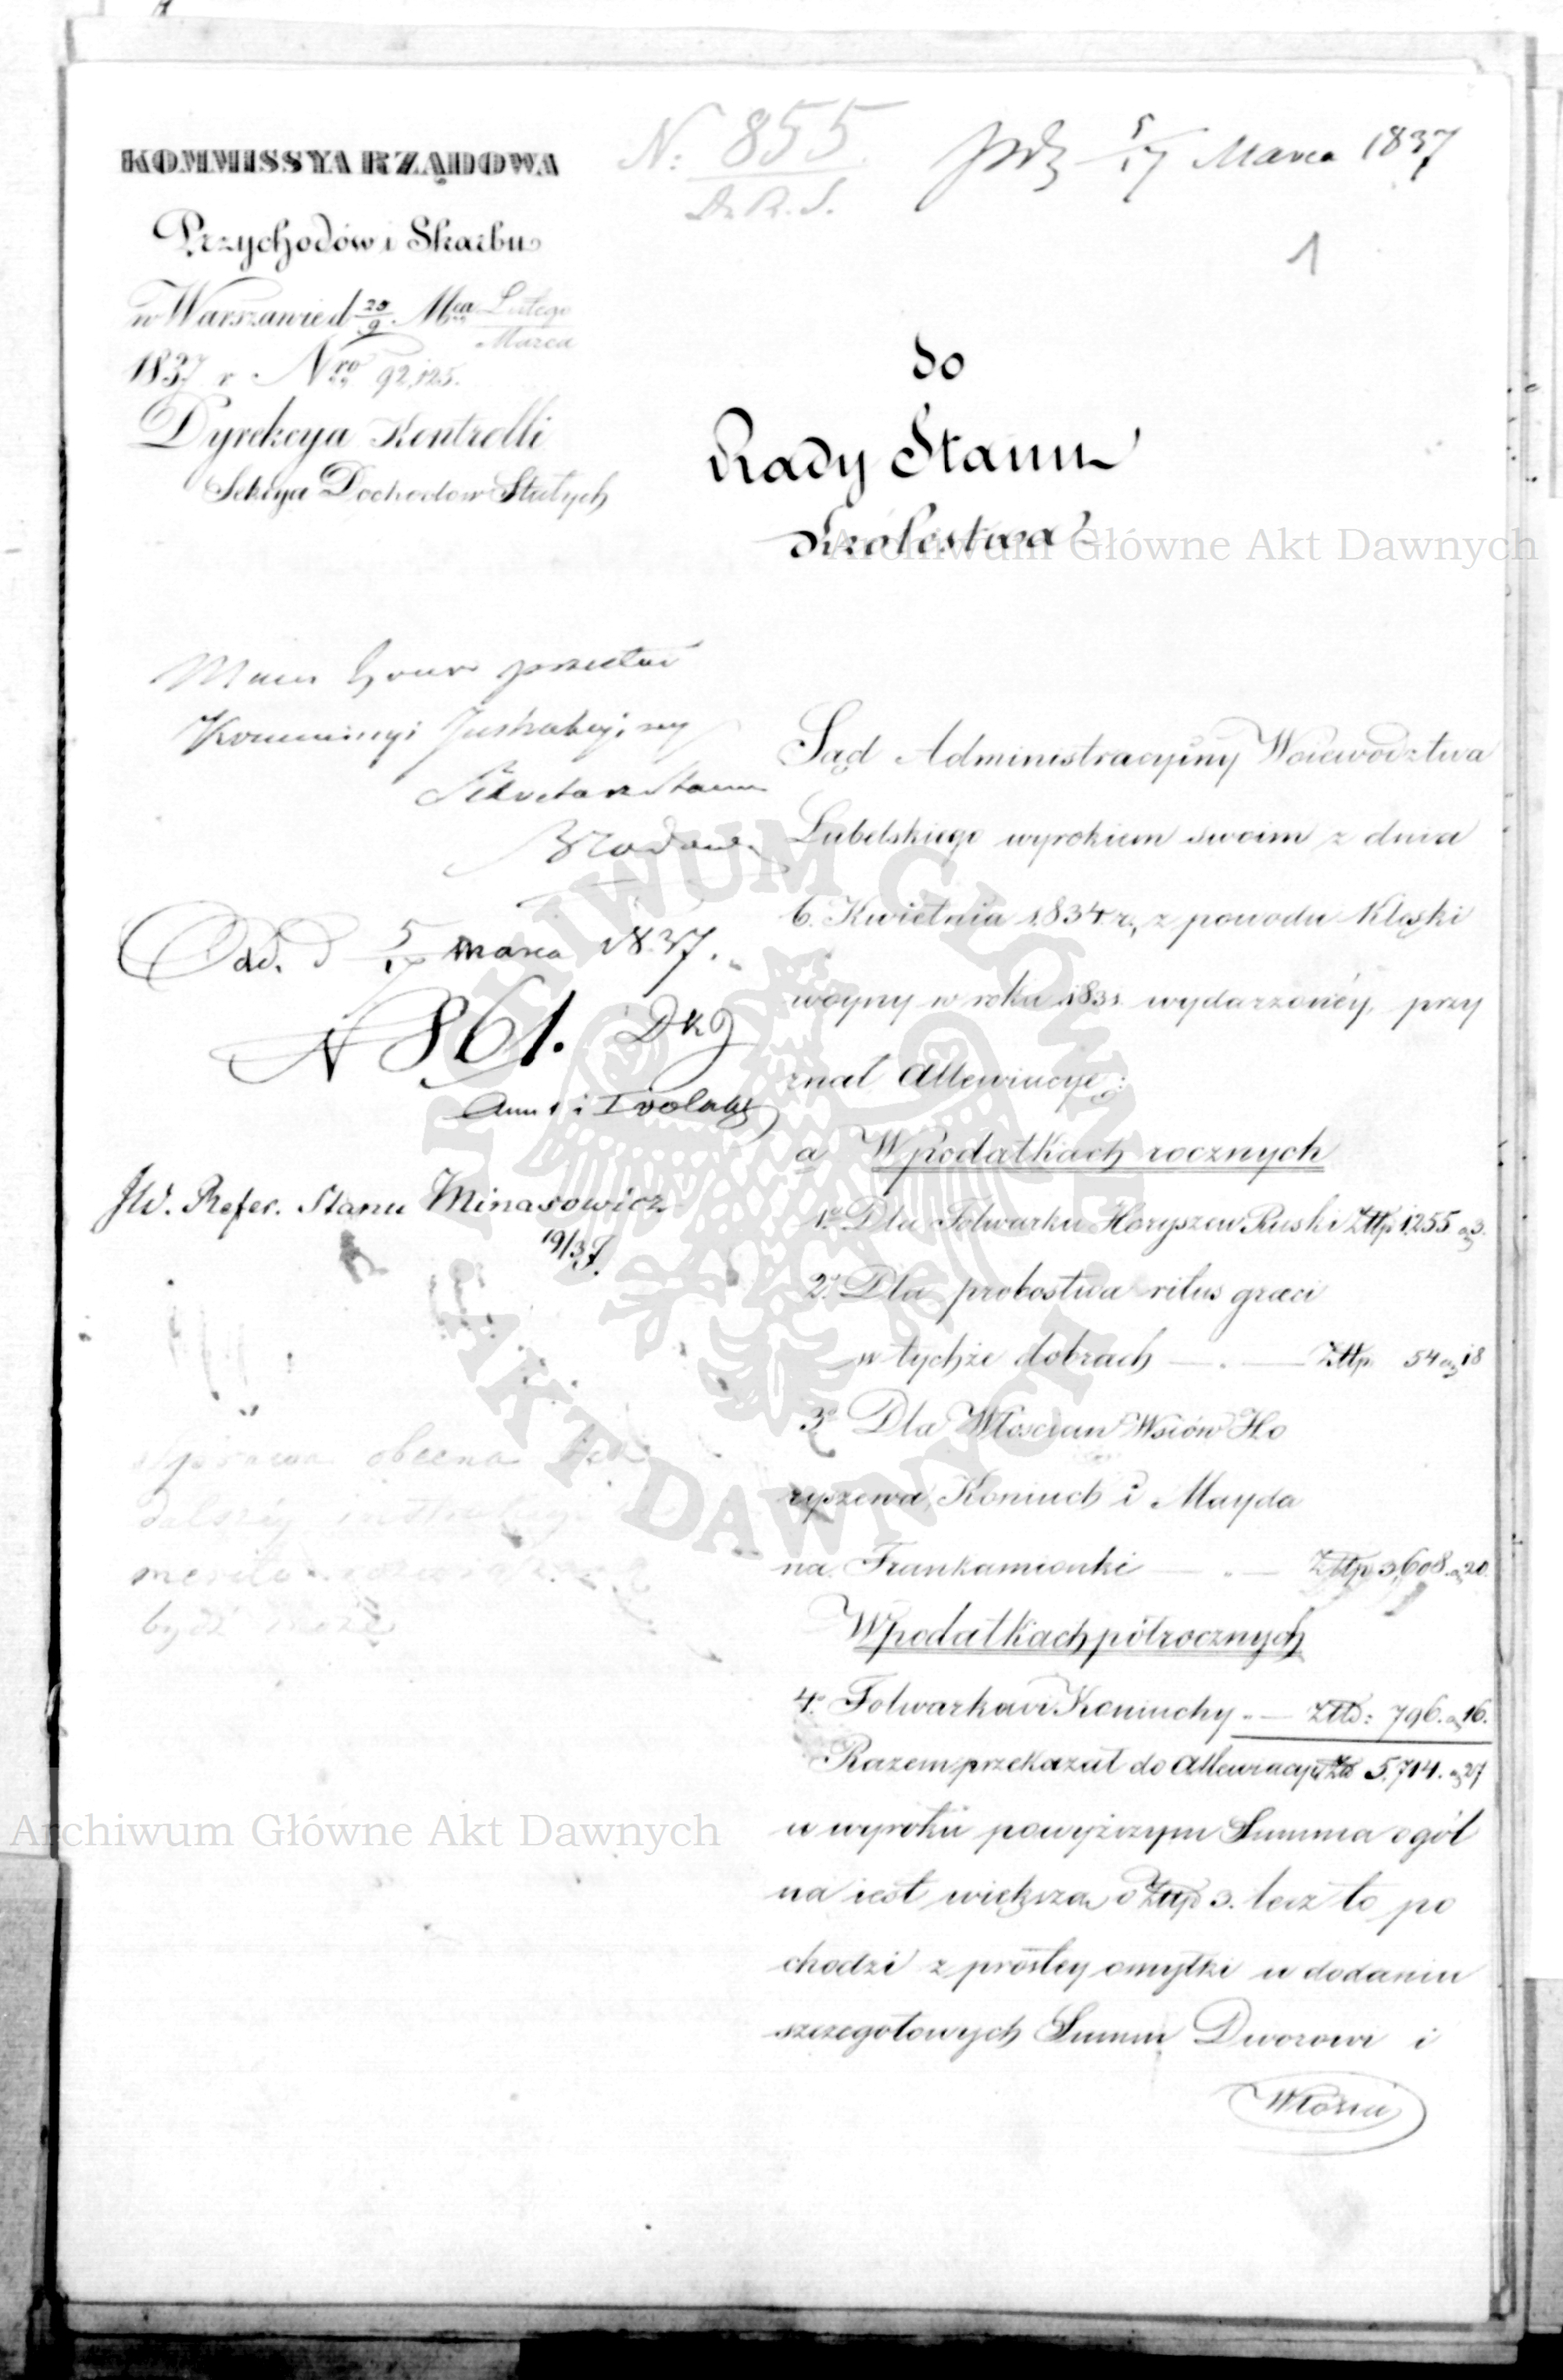 N: 855.
D. R. S.
prz 5/17 Marca 1837
1
KOMMISSYA RZĄDOWA
Przychodów i Skarbu
w Warszawie d 20/9 Mca Lutego
Marca
1837 r. Nro 92,125.
Dyrekcya Kontrolli
Sekcya Dochodow Stałych
do
Rady Stanu
Królestwa
Archiwum Główne Akt Dawnych
Mam honor przesłać
Kommissyi
Sekretarz Stanu
Odd. d 5/17 marca 1837.
N 861. DKg
JW. Refer. Stanu Minasowicz
19/3 J.
Sprawa obecna bez
dalszéy
bydź może
Sąd Administracyiny Woiewództwa
Lubelskiego wyrokiem swoim z dnia
6. Kwietnia 1834 r., z powodu klęski
woyny w roku 1831 wydarzonéy, przy
znał Allewiacye:
a W podatkach rocznych
1o Dla Folwarku Horyszew Ruski Złtp 1255 g 3.
2o Dla probostwa ritus græci
w tychże dobrach — . — Złtp. 54 g 18
3o Dla Włościan Wsiów Ho
ryszewa, Koniuch i Mayda
na Frankamionki — . — Złtp 3,608. g 20.
W podatkach półrocznych
4o Folwarkowi Koniuchy . — Złtp: 796. g 16.
Razem przekazał do Allewiacyi Złp 5,714. g 27
w wyroku powyższym Summa ogól
na iest większa o Złtp 3. lecz to po
chodzi z prostey omyłki w dodaniu
szczegółowych Summ Dworowi i
Włościa
ARCHIWUM GŁÓWNE AKT DAWNYCH
Archiwum Główne Akt Dawnych